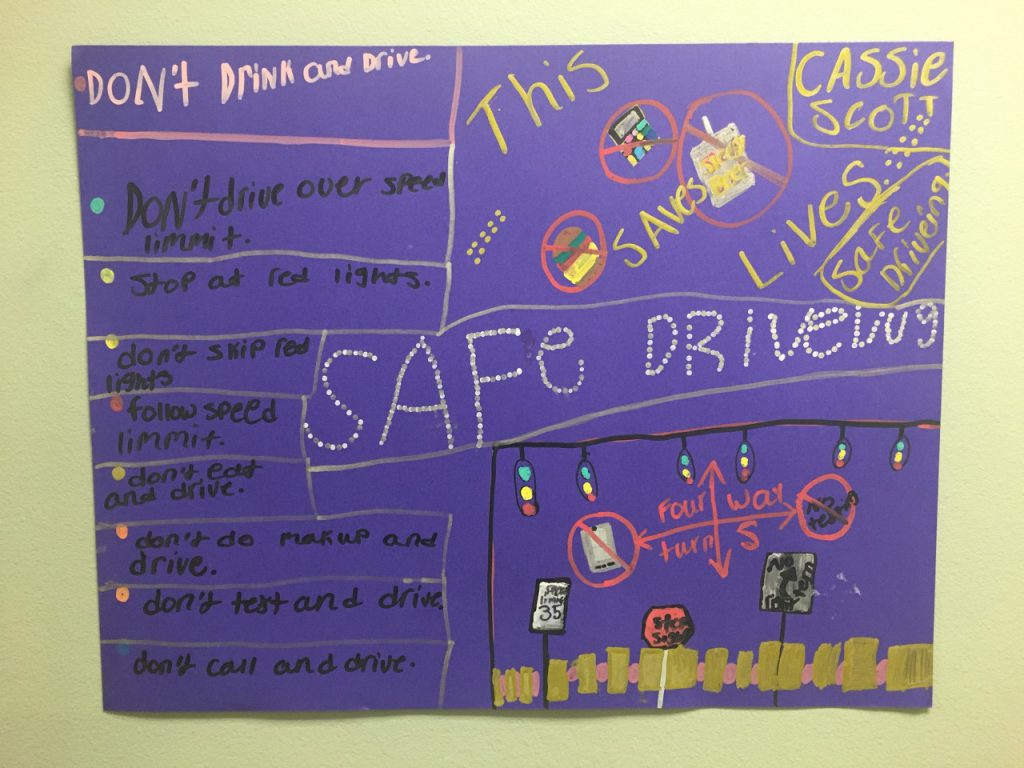 DON't DrinK and Drive.
DON't drive over speed
limmit.
Stop at red lights.
don't skip red
lights
follow speed
limmit.
don't eat
and drive.
don't do makup and
drive.
don't text and drive.
don't call and drive.
This
SAVes
LiVeS
CASSie
SCOTT
SAFe
DriVeing
SAFe DRiVeing
Four Way
turn S
NO
35
Stop
NO
turn